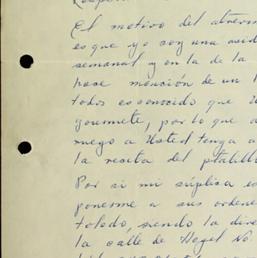 El motivo del atrevim
es que yo soy una asid
semanal y en la de la
hace mención de un
todos es conocido que U
gourmete, por lo que a
ruego a Usted tenga a
la receta del platill
Por si mi súplica es
ponerme a sus ordene
Toledo, siendo la dire
la calle de Hegel No.